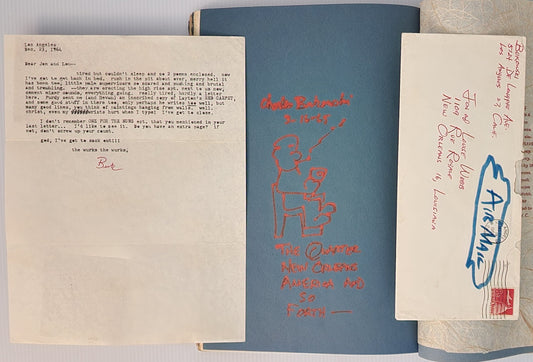 Los Angeles
Nov. 23, 1964
Dear Jon and Lou—
tired but couldn't sleep and so 2 poems enclosed. now
I've got to get back in bed. rush in the pit about over, merry hell it
has been too, little male supervisors so scared and sucking and brutal
and trembling. --they are erecting the high rise apt. next to us now,
constant mixer sounds, everything going. really tired, hardly a letter
here. Purdy sent on (and Sewed) an inscribed copy of Layton's RED CARPET,
and some good stuff in there too, only perhaps he writes too well, but
many good lines, yes, kind of paintings hanging from walls. well,
christ, even my wrists hurt when I type! I've got to close.
I don't remember ONE FOR THE WONS apt. that you mentioned in your
last letter... I'd like to see it. Do you have an extra page? if
not, don't screw up your count.
god, I've got to sack out!!!
the works the works,
Buk
Charles Bukowski
The Quarter
New Orleans
America and
So
Forth —
Bukowski
5124 De Longpre Ave
Los Angeles 27, Calif.
Jon and Louise Webb
1109 Rue Royale
New Orleans 16, Louisiana
AIR MAIL